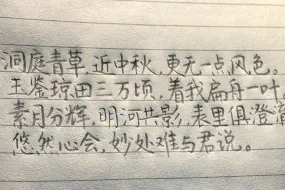 洞庭青草,近中秋,更无一点风色。
玉鉴琼田三万顷,着我扁舟一叶。
素月分辉,明河共影,表里俱澄澈
悠然心会,妙处难与君说。